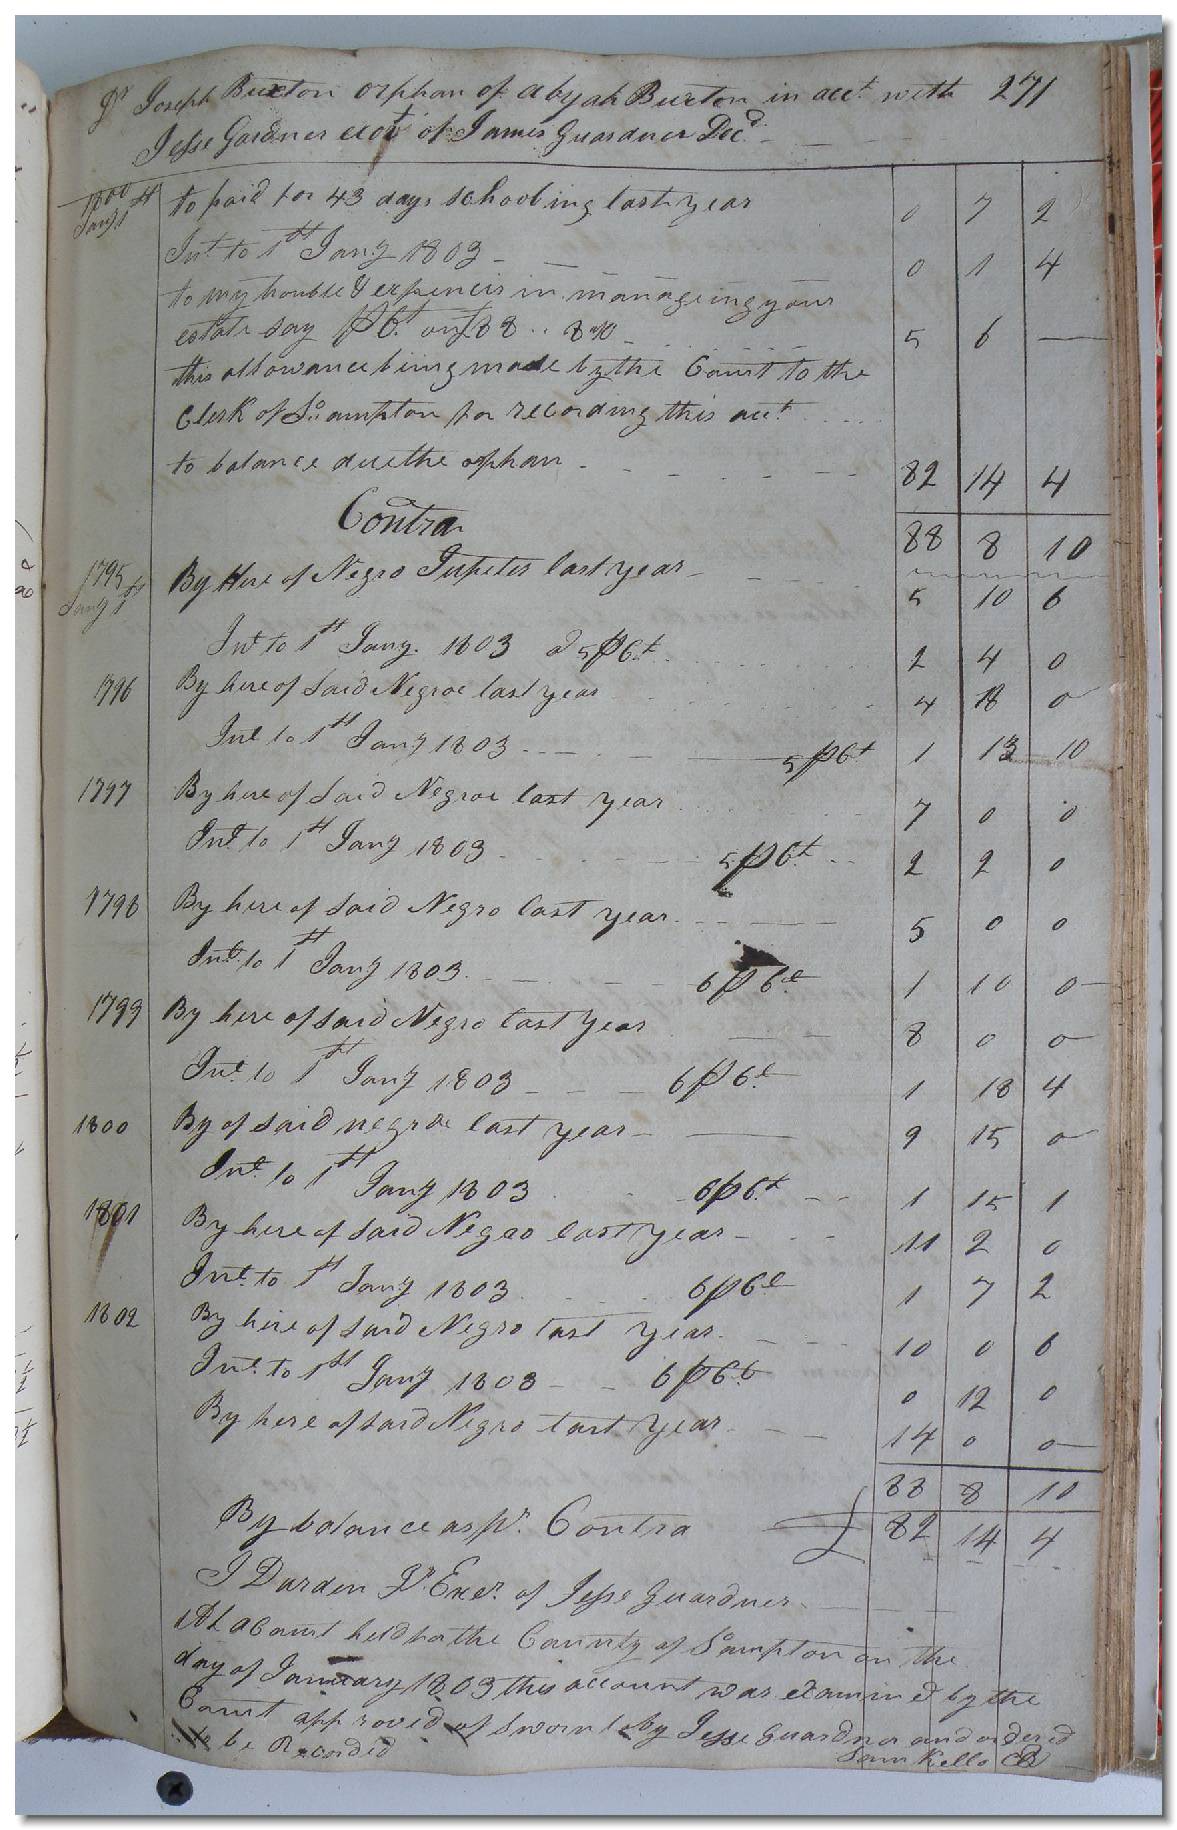 Dr Joseph Buxton orphan of abijah Buxton in acct with 271
Jesse Gardner exor of James Guardner Decd
1800 Jany 1st to paid for 43 days schooling last year 0 7 2
Int to 1st Jany 1803 0 1 4
to my trouble & expences in manageing your
estate say 6 on 88 .. 8 .. 10 5 6 —
this allowance being made by the Court to the
Clerk of So.ampton for recording this acct
to balance due the orphan 82 14 4
Contra 88 8 10
1795 Jany 1st By Hire of Negro Jupeter last year 5 10 6
Int to 1st Jany. 1803 a 5 p Ct 2 4 0
1796 By hire of said Negroe last year 4 18 0
Int to 1st Jany 1803 5 p Ct 1 13 10
1797 By hire of said Negroe last year 7 0 0
Int to 1st Jany 1803 5 p Ct 2 2 0
1798 By hire of said Negro last year 5 0 0
Int. to 1st Jany 1803 6 p Ct 1 10 0
1799 By hire of said Negro last year 8 0 0
Int. to 1st Jany 1803 6 p Ct 1 18 4
1800 By of said negroe last year 9 15 0
Int. to 1st Jany 1803 6 p Ct 1 15 1
1801 By hire of said Negro last year 11 2 0
Int. to 1st Jany 1803 6 p Ct 1 7 2
1802 By hire of said Negro last year 10 0 6
Int. to 1st Jany 1803 6 p Ct 0 12 0
By hire of said Negro last year 14 0 0
88 8 10
By balance as pr. Contra £ 82 14 4
J Darden Jr Exer. of Jesse Guardner
At a Court held for the County of So.ampton on the
day of January 1803 this account was examined by the
Court approved of sworn to by Jesse Guardner and ordered
to be Recorded
Sam Kello CC